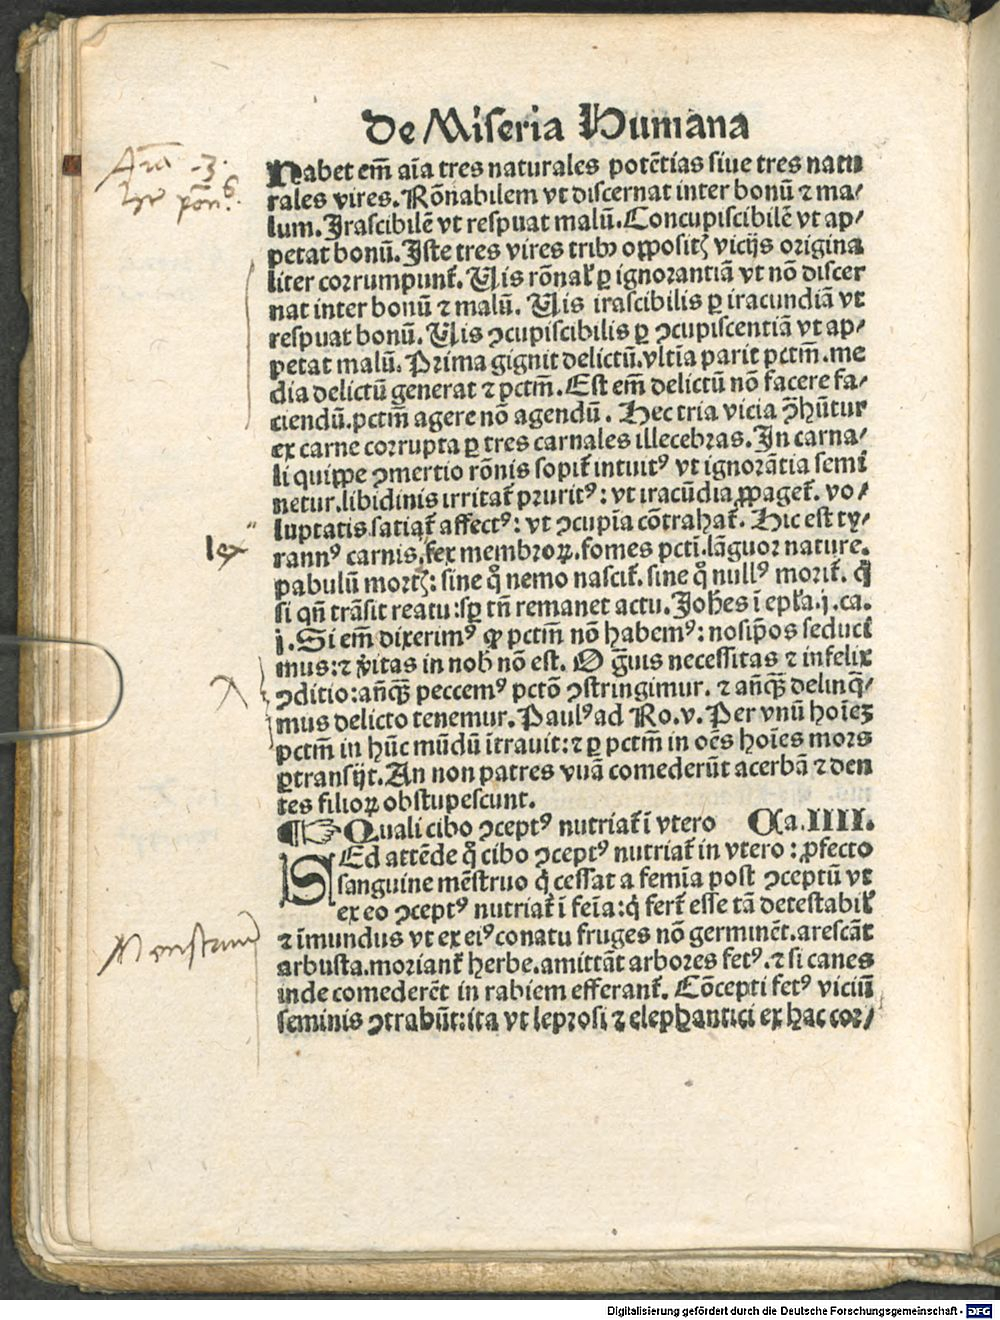 De Miseria Humana
Habet em̄ aīa tres naturales potētias siue tres natu
rales vires. Rōnabilem vt discernat inter bonū ⁊ ma⸗
lum. Irascibilē vt respuat malū. Concupiscibilē vt ap⸗
petat bonū. Iste tres vires tribꝰ opposit᷒ vicijs origina
liter corrumpunt᷑. Uis rōnal̕ ꝑ ignorantiā vt nō discer
nat inter bonū ⁊ malū. Uis irascibilis ꝑ iracundiā vt
respuat bonū. Uis ꝯcupiscibilis ꝑ ꝯcupiscentiā vt ap⸗
petat malū. Prima gignit delictū. vltīa parit pctm̄. me
dia delictū generat ⁊ pctm̄. Est em̄ delictū nō facere fa⸗
ciendū. pctm̄ agere nō agendū. Hec tria vicia ꝯ̄hūtur
ex carne corrupta ꝑ tres carnales illecebras. In carna⸗
li quippe ꝯmertio rōnis sopit᷑ intuitꝰ vt ignorātia semi
netur. libidinis irritat᷑ pruritꝰ: vt iracūdia ꝓpaget᷑. vo⸗
luptatis satiat᷑ affectꝰ: vt ꝯcupīa cōtrahat᷑. Hic est ty⸗
rannꝰ carnis, fex membroꝝ. fomes pcti. lāguor nature.
pabulū mort᷒: sine qͦ nemo nascit᷑. sine qͦ nullꝰ morit᷑. qͥ
si qn̄ trāsit reatu: sꝑ tn̄ remanet actu. Johēs ī epl̕a. j. ca.
j. Si em̄ dixerimꝰ ꝙ pctm̄ nō habemꝰ: nosip̄os seduci
mus: ⁊ v̓itas in nob̄ nō est. O g̑uis necessitas ⁊ infelix
ꝯditio: añqꝫ peccemꝰ pctō ꝯstringimur. ⁊ añqꝫ delinq̄⸗
mus delicto tenemur. Paulꝰ ad Ro. v. Per vnū hoīeꝫ
pctm̄ in hūc mūdū ītrauit: ⁊ ꝑ pctm̄ in oēs hoīes mors
ꝑtransijt. An non patres vuā comederūt acerbā ⁊ den
tes filioꝝ obstupescunt.
¶☞ Quali cibo ꝯceptꝰ nutriat᷑ ī vtero Ca. IIII.
SEd attēde qͦ cibo ꝯceptꝰ nutriat᷑ in vtero: ꝓfecto
sanguine mēstruo qͥ cessat a femīa post ꝯceptū vt
ex eo ꝯceptꝰ nutriat᷑ ī feīa: qͥ fert᷑ esse tā detestabil̕
⁊ īmundus vt ex eiꝰ conatu fruges nō germinēt. arescāt
arbusta. moriant᷑ herbe. amittāt arbores fetꝰ. ⁊ si canes
inde comederēt in rabiem efferant᷑. Cōcepti fetꝰ viciū
seminis ꝯtrahūt: ita vt leprosi ⁊ elephantici ex hac cor⸗
lex
Menstruum
Digitalisierung gefördert durch die Deutsche Forschungsgemeinschaft - DFG